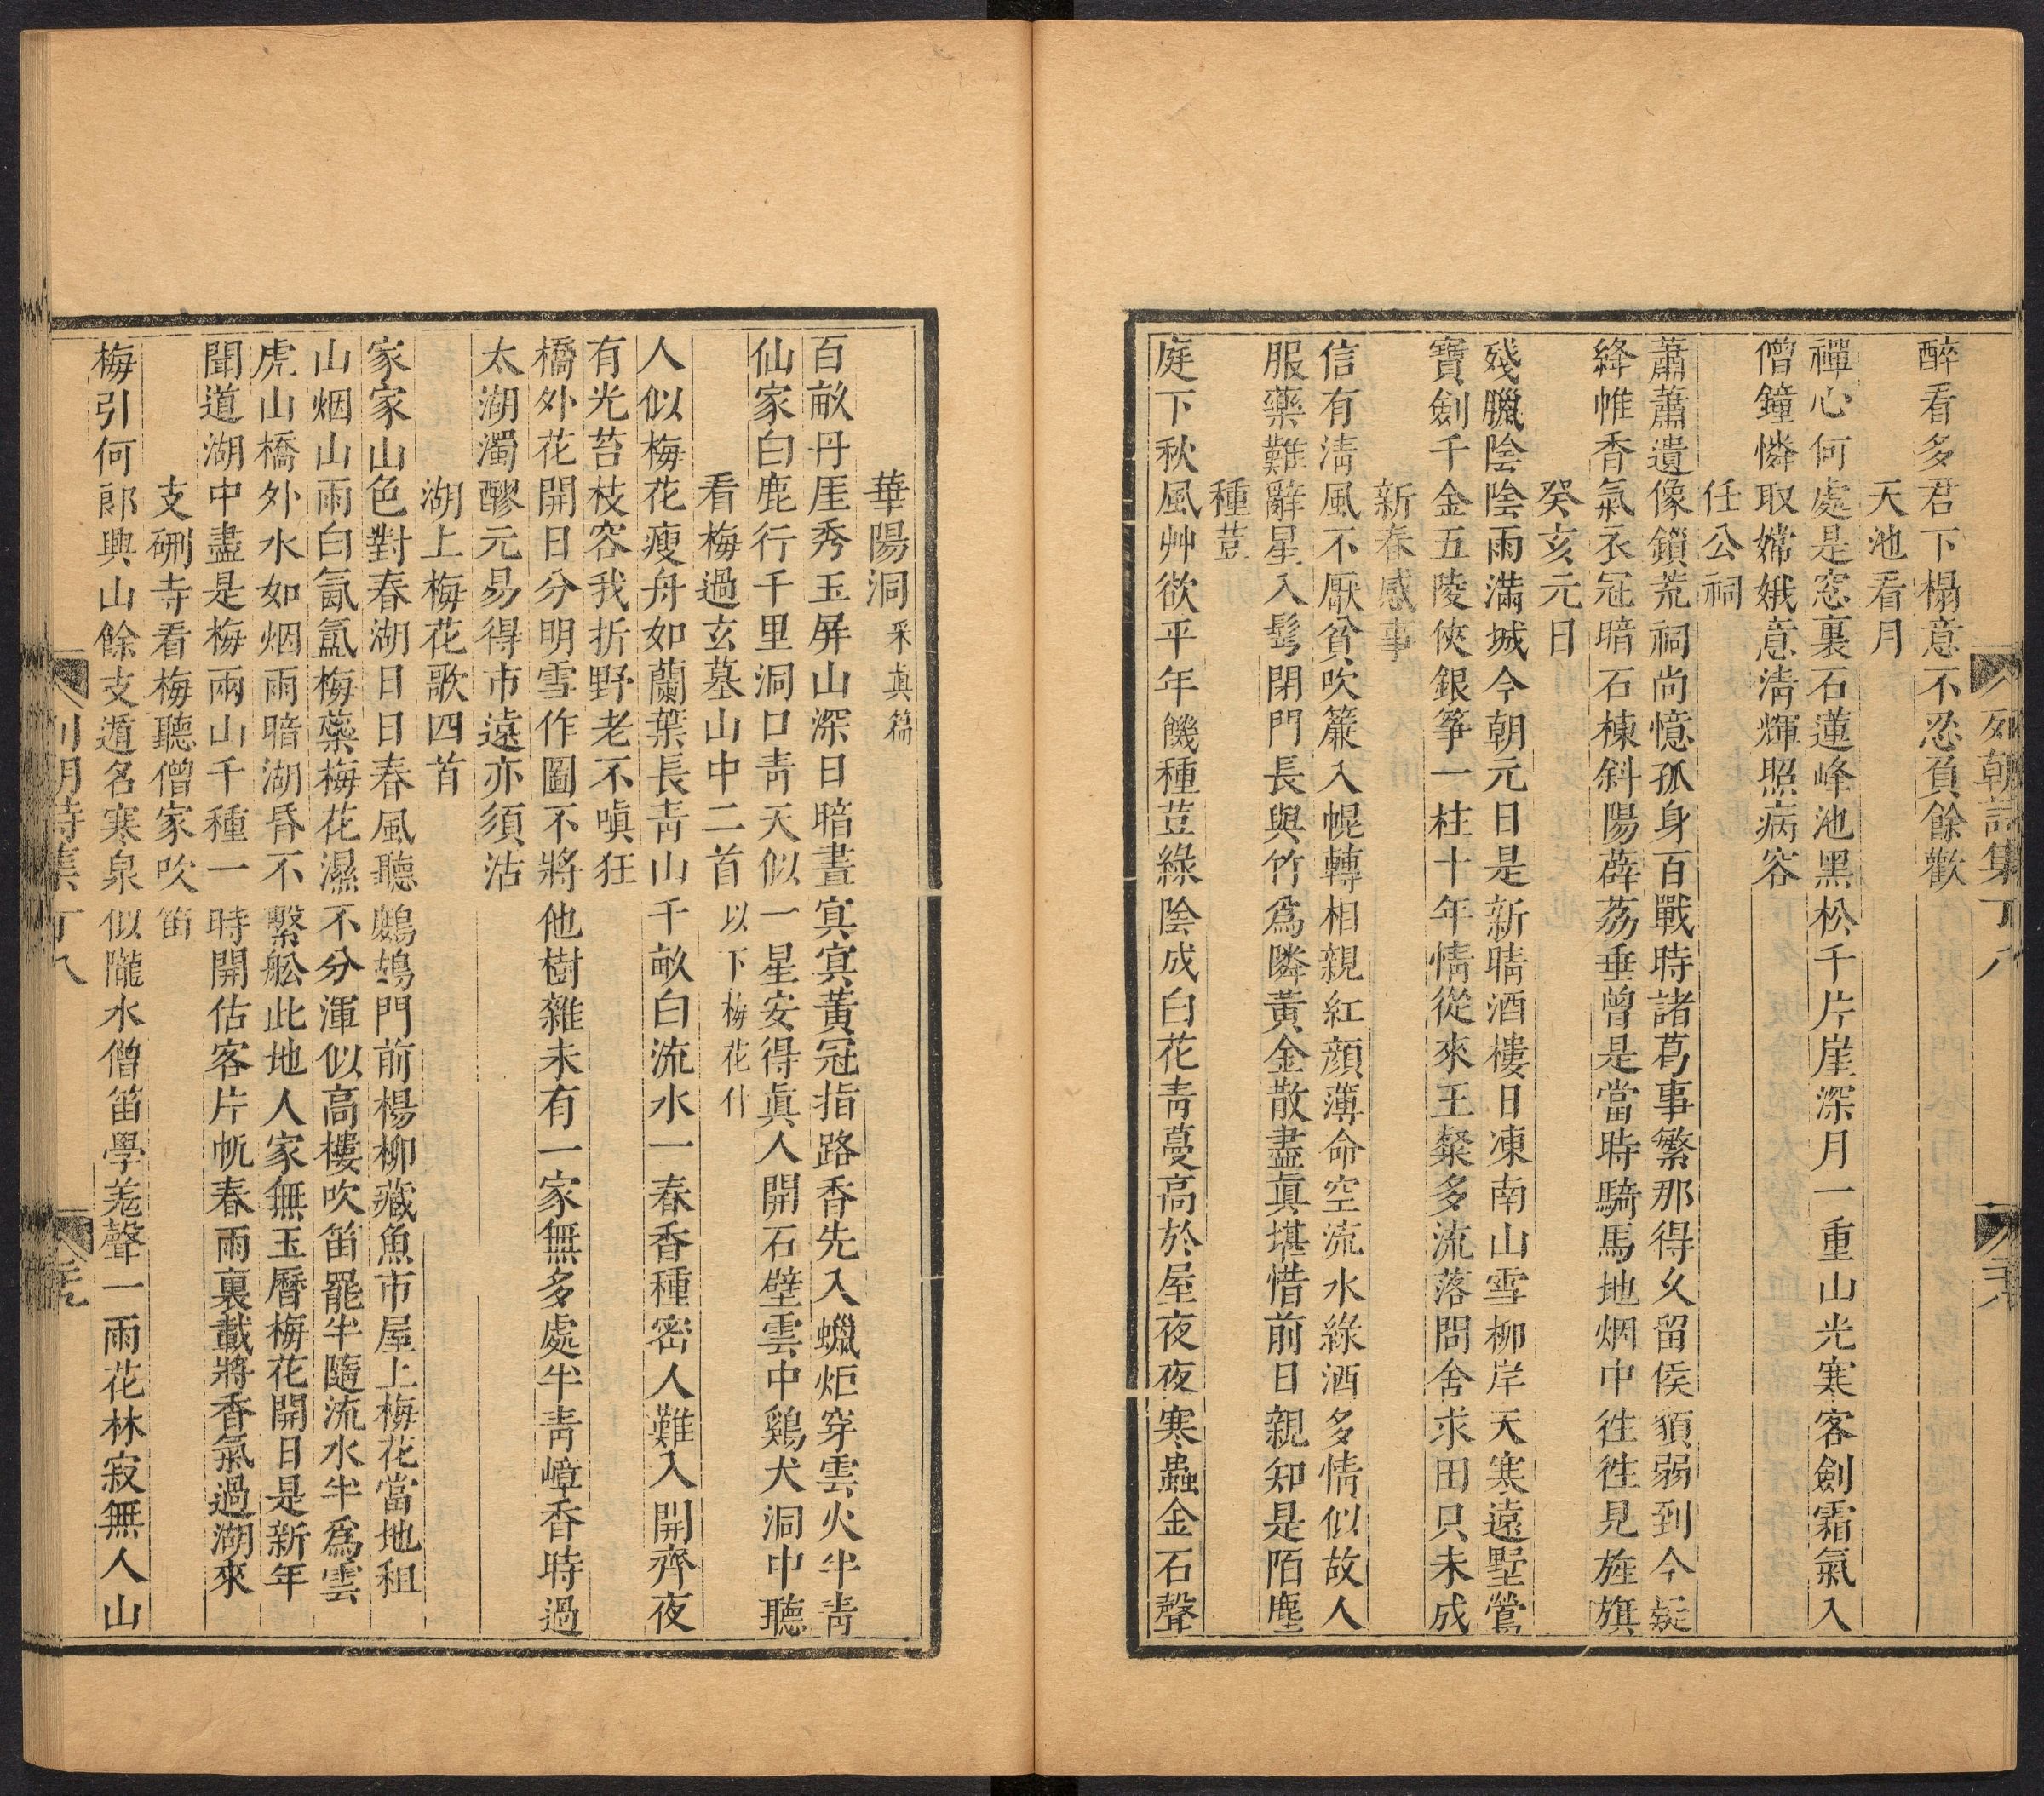 醉看多君下榻意不忍負餘歡
天池看月
禪心何處是窓裏石蓮峰池黑松千片崖深月一重山光寒客劍霜氣入
僧鐘憐取嫦娥意淸輝照病容
任公祠
蕭蕭遺像鎖荒祠尚憶孤身百戰時諸葛事繁那得久留侯貌弱到今疑
絳帷香氣衣冠暗石棟斜陽薜荔垂曾是當時騎馬地烟中徃徃見旌旗
癸亥元日
殘臘陰陰雨滿城今朝元日是新晴酒樓日凍南山雪柳岸天寒遠墅鶯
寶劍千金五陵俠銀箏一柱十年情從來王粲多流落問舍求田只未成
新春感事
信有淸風不厭貧吹簾入幌轉相親紅顏薄命空流水綠酒多情似故人
服藥難辭星入髩閉門長與竹爲隣黃金散盡眞堪惜前日親知是陌塵
種荳
庭下秋風艸欲平年饑種荳綠陰成白花靑蔓高於屋夜夜寒蟲金石聲
列朝詩集 丁八
華陽洞 采眞篇
百畝丹厓秀玉屏山深日暗晝冥冥黃冠指路香先入蠟炬穿雲火半靑
仙家白鹿行千里洞口靑天似一星安得眞人開石壁雲中鷄犬洞中聽
看梅過玄墓山中二首 以下梅花什
人似梅花瘦舟如蘭葉長靑山千畝白流水一春香種密人難入開齊夜
有光苔枝容我折野老不嗔狂
橋外花開日分明雪作圖不將他樹雜未有一家無多處半靑嶂香時過
太湖濁醪元易得市遠亦須沽
湖上梅花歌四首
家家山色對春湖日日春風聽鷓鴣門前楊柳藏魚市屋上梅花當地租
山烟山雨白氤氳梅蘂梅花濕不分渾似高樓吹笛罷半隨流水半爲雲
虎山橋外水如烟雨暗湖昏不繫舩此地人家無玉曆梅花開日是新年
聞道湖中盡是梅兩山千種一時開估客片帆春雨裏載將香氣過湖來
支硎寺看梅聽僧家吹笛
梅引何郎興山餘支遁名寒泉似隴水僧笛學羗聲一雨花林寂無人山
列朝詩集 丁八